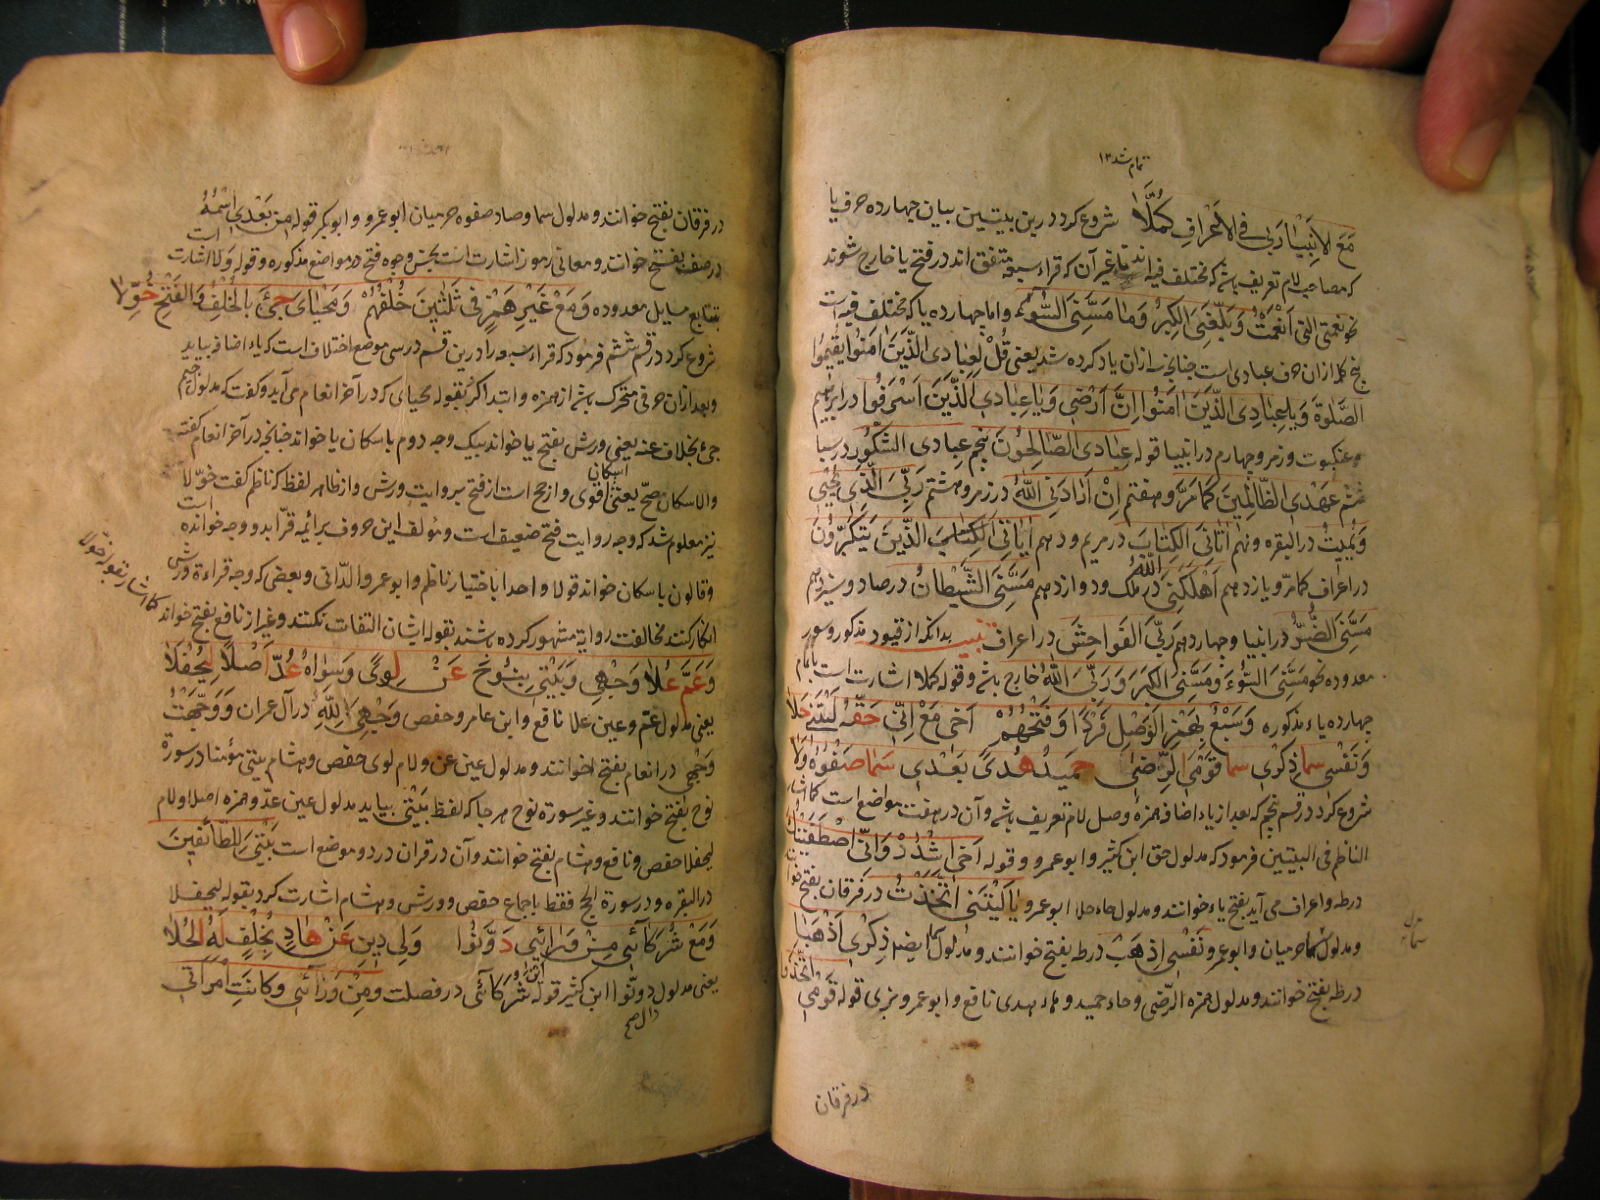 تمام شد ۱۳
مَعَ الأنبِیَا رَبّی فی الاَعْرافِ کَمَّلَا شروع کرد درین بیتین بیان چهارده حرف یا
که مصاحب لام تعریف باشد که مختلف فیه اند بغیر آن که قراء سبعه متفق اند در فتح یا خارج شوند
نحو نعمتی التی اَنْعَمْتُ وَبَلَغَنِیَ الکِبَرُ وَمَا مَسَّنِیَ السُّوءُ و اما چهارده یا که مختلف فیه است
پنج کلمه ازان حرف عبادی است چنانچه ازان یاد کرده شد یعنی قُلْ لِعِبَادِی الَّذِینَ آمَنُوا یُقِیمُوا
الصَّلوةَ وَیَا عِبَادِیَ الَّذِینَ آمَنُوا اِنَّ اَرْضِی وَیَا عِبَادِیَ الَّذِینَ اَسْرَفُوا در ابراهیم
و عنکبوت و زمر و چهارم در انبیا قوله عِبَادِیَ الصَّالِحُونَ پنجم عِبَادِیَ الشَّکُورُ در سبا
ششم عَهْدِی الظَّالِمِینَ کما مَرَّ و هفتم اِنْ اَرَادَنِیَ اللّٰهُ در زمر و هشتم رَبِّیَ الَّذِی یُحْیِی
وَیُمِیتُ در البقره و نهم آتَانِیَ الکِتَابَ در مریم و دهم آیَاتِیَ الَّذِینَ یَتَکَبَّرُونَ
در اعراف کما مر و یازدهم اَهْلَکَنِیَ اللّٰهُ در ملک و دوازدهم مَسَّنِیَ الشَّیْطَانُ در صاد و سیزدهم
مَسَّنِیَ الضُّرُّ در انبیا و چهاردهم رَبِّیَ الفَوَاحِشَ در اعراف تنبیه بدانکه از قیود مذکوره و سور
معدوده نحو مَسَّنِیَ السُّوءُ وَمَسَّنِیَ الکِبَرُ وَرَبِّیَ اللّٰهُ خارج باشد و قوله کملا اشارت است باتمام
چهارده یاء مذکوره وَسَبْعٌ بِهَمْزِ الوَصْلِ فَرْدًا وَفَتْحُهُمْ اَخِی مَعَ اِنِّی حَقُّهُ لَیْتَنِی حَلَا
وَنَفْسِی سَمَا ذِکْرِی سَمَا قَوْمِی الرِّضَی حَمِیدُ هُدًی بَعْدِی سَمَا صَفْوُهُ وَلَا
شروع کرد در قسم پنجم که بعد از یاء اضافه همزه وصل بلا لام تعریف باشد و آن در هفت مواضع است کما اشار
الناظم فی البیتین فرمود که مدلول حق ابن کثیر و ابو عمرو و قوله اَخِی اشْدُدْ وَاِنِّی اصْطَفَیْتُکَ
در طه و اعراف می آید بفتح یاء خوانند و مدلول حاء حلا ابو عمرو یَا لَیْتَنِی اتَّخَذْتُ در فرقان بفتح خواند
و مدلول سما حرمیان و ابو عمرو نَفْسِی اذْهَبْ در طه بفتح خوانند و مدلول سما ایضا ذِکْرِی اذْهَبَا
در طه بفتح خوانند و مدلول همزه الرّضی و حاء حمید و هاء هدی نافع و ابو عمرو و بزی قوله قَوْمِی اتَّخَذُوا
در فرقان
در فرقان بفتح خوانند و مدلول سما و صاد صفوه حرمیان ابو عمرو و ابو بکر قوله مِنْ بَعْدِی اسْمُهُ
در صف بفتح خوانند و معانی رموز اشارت است بحسن وجوه فتح در مواضع مذکوره و قوله وَلَا اشارت است
بتتابع مسایل معدوده وَمَعَ غَیْرِ هَمْزٍ فی ثَلٰثِینَ خُلْفُهُمْ وَمَحْیَایَ جِیْ بِالخُلْفِ وَالفَتْحُ خُوِّلَا
شروع کرد در قسم ششم فرمود که قراء سبعه را درین قسم در سی موضع اختلاف است که یاء اضافه بیاید
و بعد ازان حرفی متحرک باشد از همزه و ابتدا کرد بقوله محیای که در آخر انعام می آید و گفت که مدلول جیم
جئ بخلاف عنه یعنی ورش بفتح یا خواند بیک وجه دوم باسکان یا خواند چنانچه در آخر انعام گفته
والاسکان صحّ یعنی اسکان اقوی و ارجح است از فتح بروایت ورش و از ظاهر لفظ که ناظم گفت خوّلا
نیز معلوم شد که وجه روایت فتح ضعیف است و مؤلف این حروف بر ائمه قرّا بدو وجه خوانده است
و قالون باسکان خواند قولا واحدا باختیار ناظم و ابو عمرو الدّانی و بعضی که وجه قراءة ورش
انکار کنند مخالفت روایة مشهور کرده باشند بقوله ایشان التفات نکنند و غیر از نافع بفتح خواند
کما اشار بقوله خوّلا
وَعَمَّ عُلًا وَجْهِی وَبَیْتِی بِنُوحَ عَنْ لِوًی وَسِوَاهُ عُدَّ اَصْلًا لِیُحْفَلَا
یعنی مدلول عمّ و عین علا نافع و ابن عامر و حفص وَجْهِیَ لِلّٰهِ در آل عمران وَوَجَّهْتُ
وَجْهِیَ در انعام بفتح خوانند و مدلول عین عن و لام لوی حفص و هشام بیتی مؤمنا در سورة
نوح بفتح خوانند و غیر سورة نوح هرجا که لفظ بَیْتِی بیاید مدلول عین عدّ و همزه اصلا و لام
لیحفلا حفص و نافع و هشام بفتح خوانند و آن در قران در دو موضع است بَیْتِیَ لِلطَّائِفِینَ
در البقره و در سورة الحج فقط باجماع حفص و ورش و هشام اشارت کرد بقوله لیحفلا
وَمَعْ شُرَکَائِی مِنْ وَرَائِی دَوَّنُوا وَلِی دِینِ عَنْ هَادٍ بِخُلْفٍ لَهُ الحُلَا
یعنی مدلول دال دوّنوا ابن کثیر قوله شُرَکَائِی در فصلت وَمِنْ وَرَائِی وَکَانَتِ امْرَأَتِی